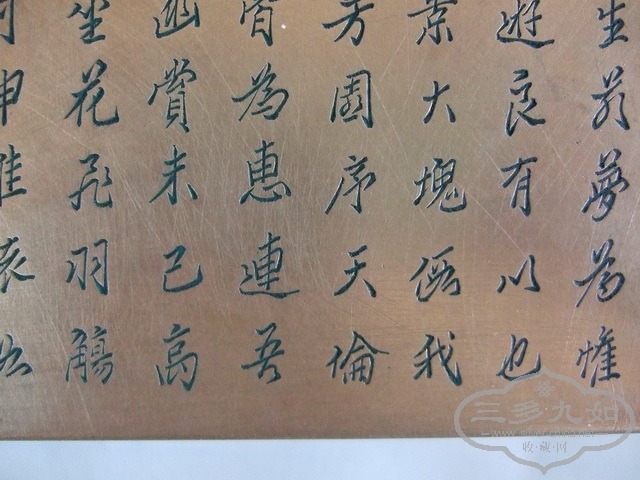 生若夢為懽
遊良有以也
景大塊假我
芳園序天倫
皆為惠連吾
幽賞未已高
坐花飛羽觴
三多·九如
收·藏·网